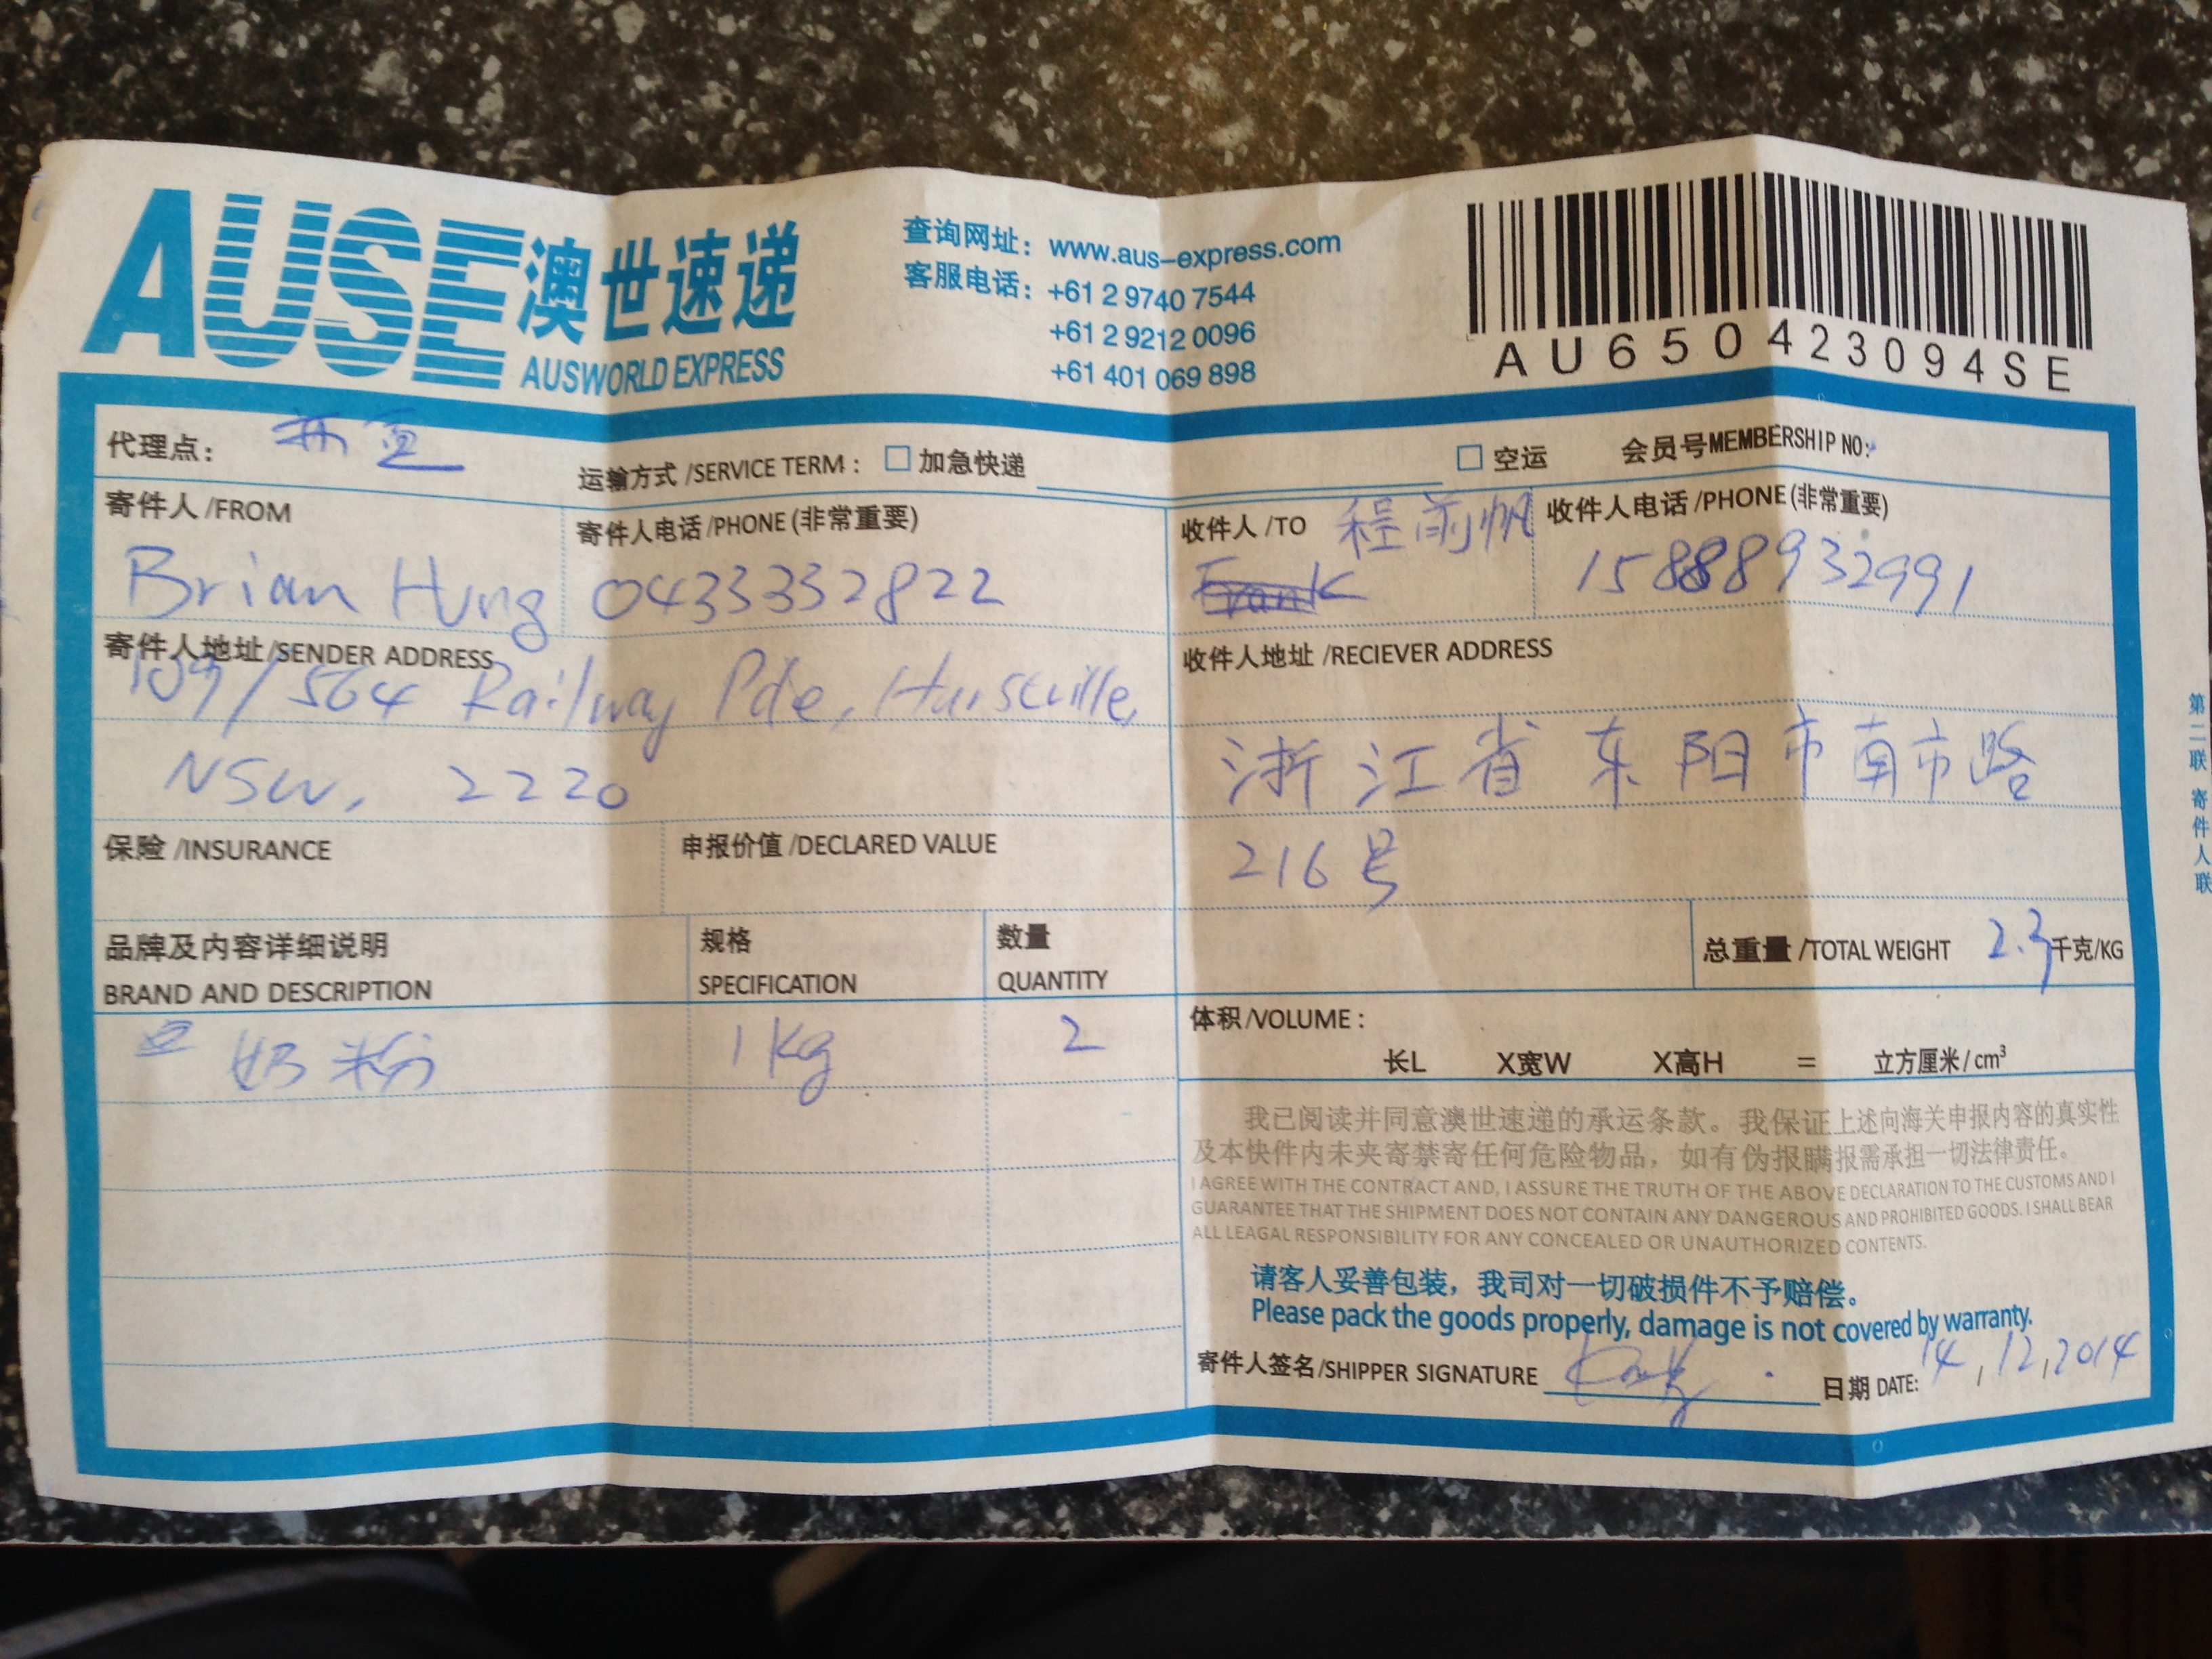 AUSE澳世速递
AUSWORLD EXPRESS
查询网址： www.aus-express.com
客服电话： +61 2 9740 7544
+61 2 9212 0096
+61 401 069 898
AU650423094SE
代理点：
运输方式/SERVICE TERM： □ 加急快递 □ 空运 会员号MEMBERSHIP NO:
寄件人/FROM
Brian Hung
寄件人电话/PHONE (非常重要)
0433332822
寄件人地址/SENDER ADDRESS
109/564 Railway Pde, Hurstville,
NSW, 2220
收件人/TO
收件人电话/PHONE (非常重要)
15888932991
收件人地址/RECIEVER ADDRESS
浙江省东阳市南市路
216号
保险/INSURANCE
申报价值/DECLARED VALUE
总重量/TOTAL WEIGHT 2.3 千克/KG
品牌及内容详细说明
BRAND AND DESCRIPTION
规格
SPECIFICATION
数量
QUANTITY
米粉 1kg 2
体积/VOLUME：
长L X宽W X高H = 立方厘米/cm³
我已阅读并同意澳世速递的承运条款。我保证上述向海关申报内容的真实性
及本快件内未夹寄禁寄任何危险物品，如有伪报瞒报需承担一切法律责任。
I AGREE WITH THE CONTRACT AND, I ASSURE THE TRUTH OF THE ABOVE DECLARATION TO THE CUSTOMS AND I
GUARANTEE THAT THE SHIPMENT DOES NOT CONTAIN ANY DANGEROUS AND PROHIBITED GOODS. I SHALL BEAR
ALL LEAGAL RESPONSIBILITY FOR ANY CONCEALED OR UNAUTHORIZED CONTENTS.
请客人妥善包装，我司对一切破损件不予赔偿。
Please pack the goods properly, damage is not covered by warranty.
寄件人签名/SHIPPER SIGNATURE
日期 DATE: 14, 12, 2014
第二联 寄件人联